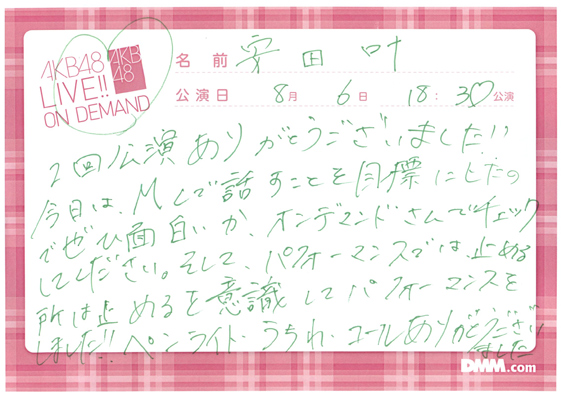 AKB48
LIVE!!
ON DEMAND
AKB
48
名前 安田叶
公演日 8月 6日 18:30公演
2回公演ありがとうございました!!
今日は、MCで話すことを目標にしたの
でぜひ面白いか、オンデマンドさんでチェック
してください。そして、パフォーマンスでは、止める
所は止めるを意識してパフォーマンスを
しました!!ペンライト・うちわ・コールありがとうござい
ました
DMM.com